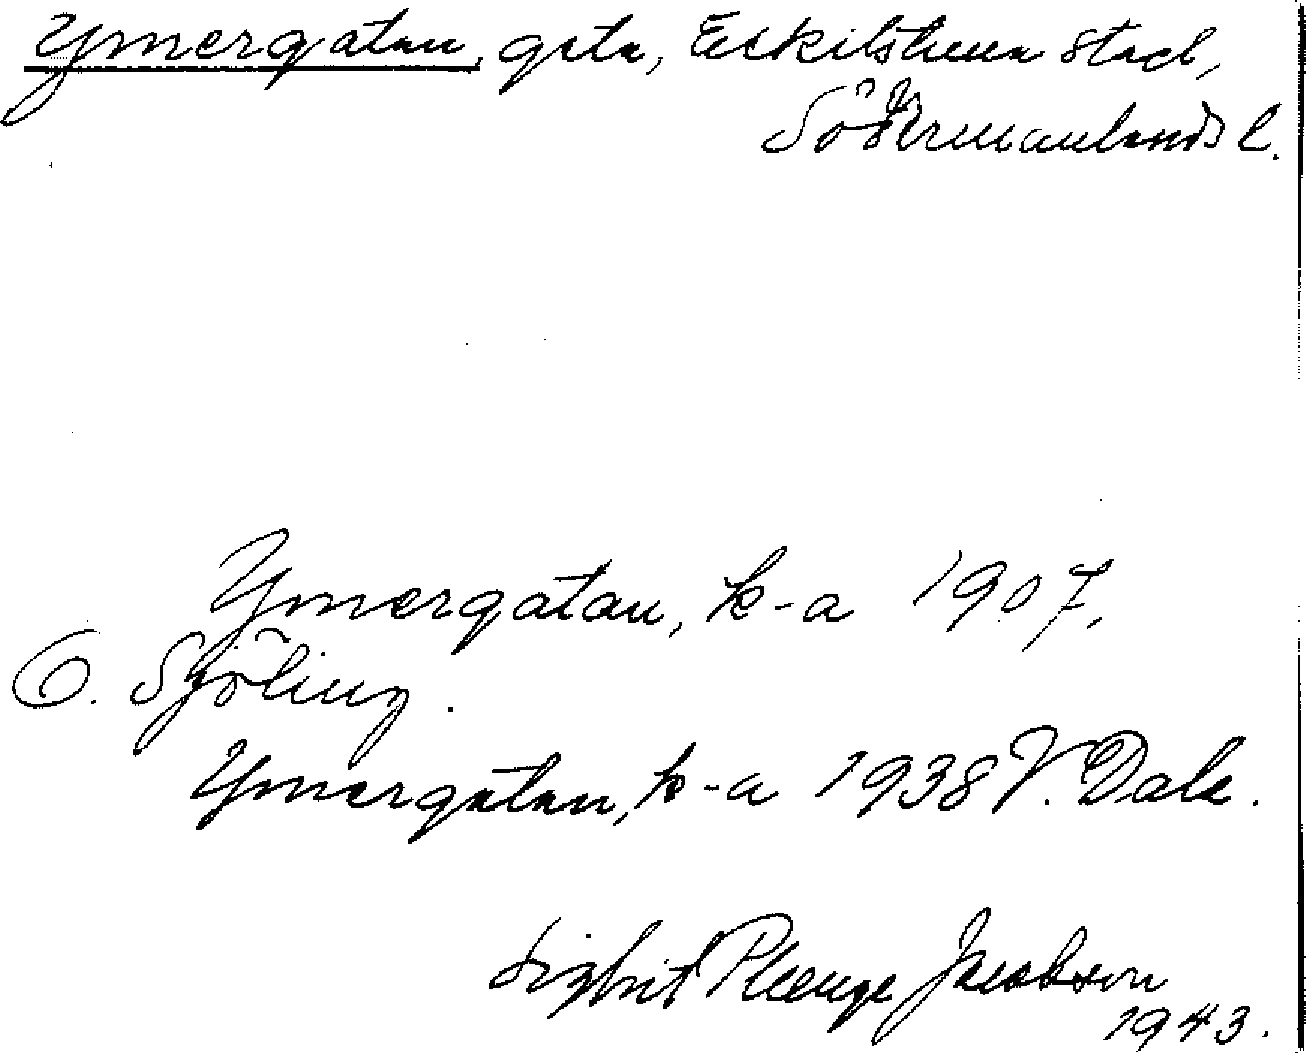 Ymergatan, gata, Eskilstuna stad,
Södermanlands l.
Ymergatan, k-a 1907,
O. Sjöling.
Ymergatan, k-a 1938 V. Dala.
Sigbrit Plenge Jacobson
1943.